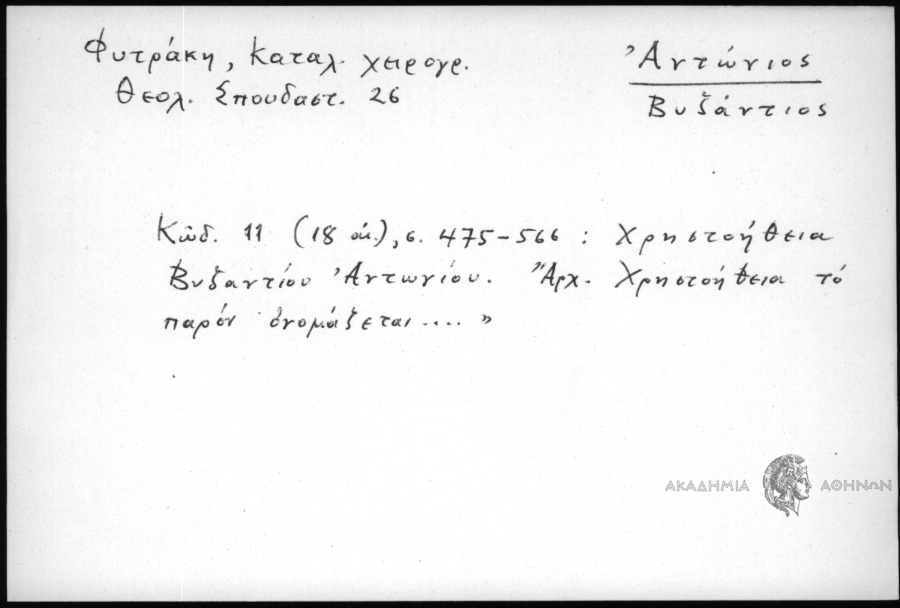 Φυτράκη, Καταλ. χειρογρ.
Θεολ. Σπουδαστ. 26
Ἀντώνιος
Βυζάντιος
Κῶδ. 11 (18 αἰ.), σ. 475-566 : Χρηστοήθεια
Βυζαντίου Ἀντωνίου. Ἀρχ. Χρηστοήθεια τό
παρόν ὀνομάζεται.... »
ΑΚΑΔΗΜΙΑ ΑΘΗΝΩΝ